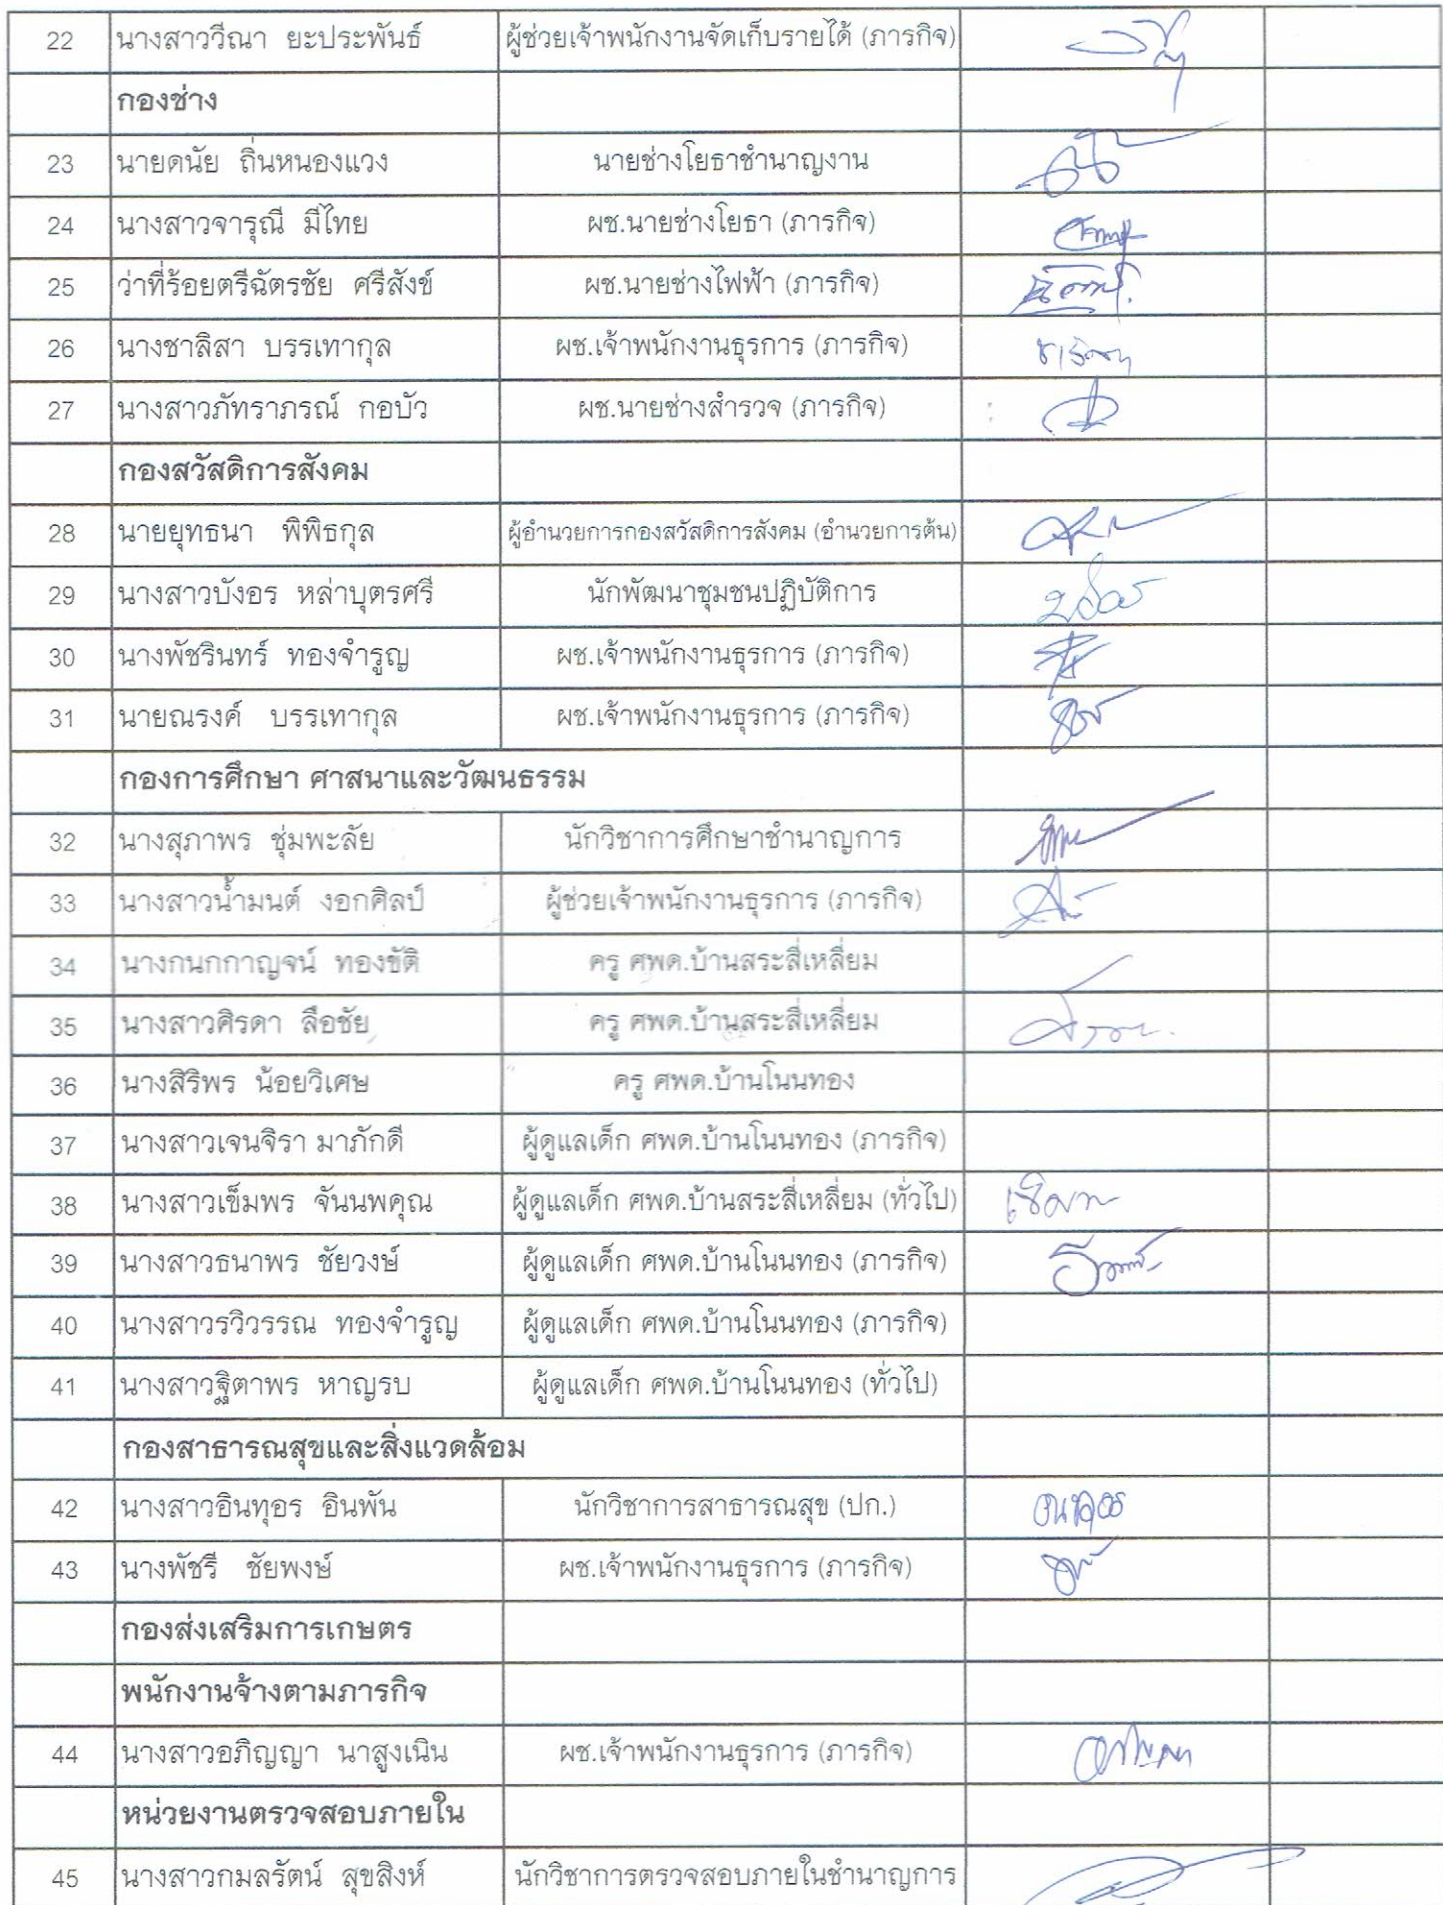 22 นางสาววีณา ยะประพันธ์ ผู้ช่วยเจ้าพนักงานจัดเก็บรายได้ (ภารกิจ)
กองช่าง
23 นายดนัย ถิ่นหนองแวง นายช่างโยธาชำนาญงาน
24 นางสาวจารุณี มีไทย ผช.นายช่างโยธา (ภารกิจ)
25 ว่าที่ร้อยตรีฉัตรชัย ศรีสังข์ ผช.นายช่างไฟฟ้า (ภารกิจ)
26 นางชาลิสา บรรเทากุล ผช.เจ้าพนักงานธุรการ (ภารกิจ)
27 นางสาวภัทราภรณ์ กอบัว ผช.นายช่างสำรวจ (ภารกิจ)
กองสวัสดิการสังคม
28 นายยุทธนา พิพิธกุล ผู้อำนวยการกองสวัสดิการสังคม (อำนวยการต้น)
29 นางสาวบังอร หล่าบุตรศรี นักพัฒนาชุมชนปฏิบัติการ
30 นางพัชรินทร์ ทองจำรูญ ผช.เจ้าพนักงานธุรการ (ภารกิจ)
31 นายณรงค์ บรรเทากุล ผช.เจ้าพนักงานธุรการ (ภารกิจ)
กองการศึกษา ศาสนาและวัฒนธรรม
32 นางสุภาพร ชุ่มพะลัย นักวิชาการศึกษาชำนาญการ
33 นางสาวน้ำมนต์ งอกศิลป์ ผู้ช่วยเจ้าพนักงานธุรการ (ภารกิจ)
34 นางกนกกาญจน์ ทองขัติ ครู ศพด.บ้านสระสี่เหลี่ยม
35 นางสาวศิรดา ลือชัย ครู ศพด.บ้านสระสี่เหลี่ยม
36 นางสิริพร น้อยวิเศษ ครู ศพด.บ้านโนนทอง
37 นางสาวเจนจิรา มาภักดี ผู้ดูแลเด็ก ศพด.บ้านโนนทอง (ภารกิจ)
38 นางสาวเข็มพร จันนพคุณ ผู้ดูแลเด็ก ศพด.บ้านสระสี่เหลี่ยม (ทั่วไป)
39 นางสาวธนาพร ชัยวงษ์ ผู้ดูแลเด็ก ศพด.บ้านโนนทอง (ภารกิจ)
40 นางสาวรวิวรรณ ทองจำรูญ ผู้ดูแลเด็ก ศพด.บ้านโนนทอง (ภารกิจ)
41 นางสาวฐิตาพร หาญรบ ผู้ดูแลเด็ก ศพด.บ้านโนนทอง (ทั่วไป)
กองสาธารณสุขและสิ่งแวดล้อม
42 นางสาวอินทุอร อินพัน นักวิชาการสาธารณสุข (ปก.)
43 นางพัชรี ชัยพงษ์ ผช.เจ้าพนักงานธุรการ (ภารกิจ)
กองส่งเสริมการเกษตร
พนักงานจ้างตามภารกิจ
44 นางสาวอภิญญา นาสูงเนิน ผช.เจ้าพนักงานธุรการ (ภารกิจ)
หน่วยงานตรวจสอบภายใน
45 นางสาวกมลรัตน์ สุขสิงห์ นักวิชาการตรวจสอบภายในชำนาญการ